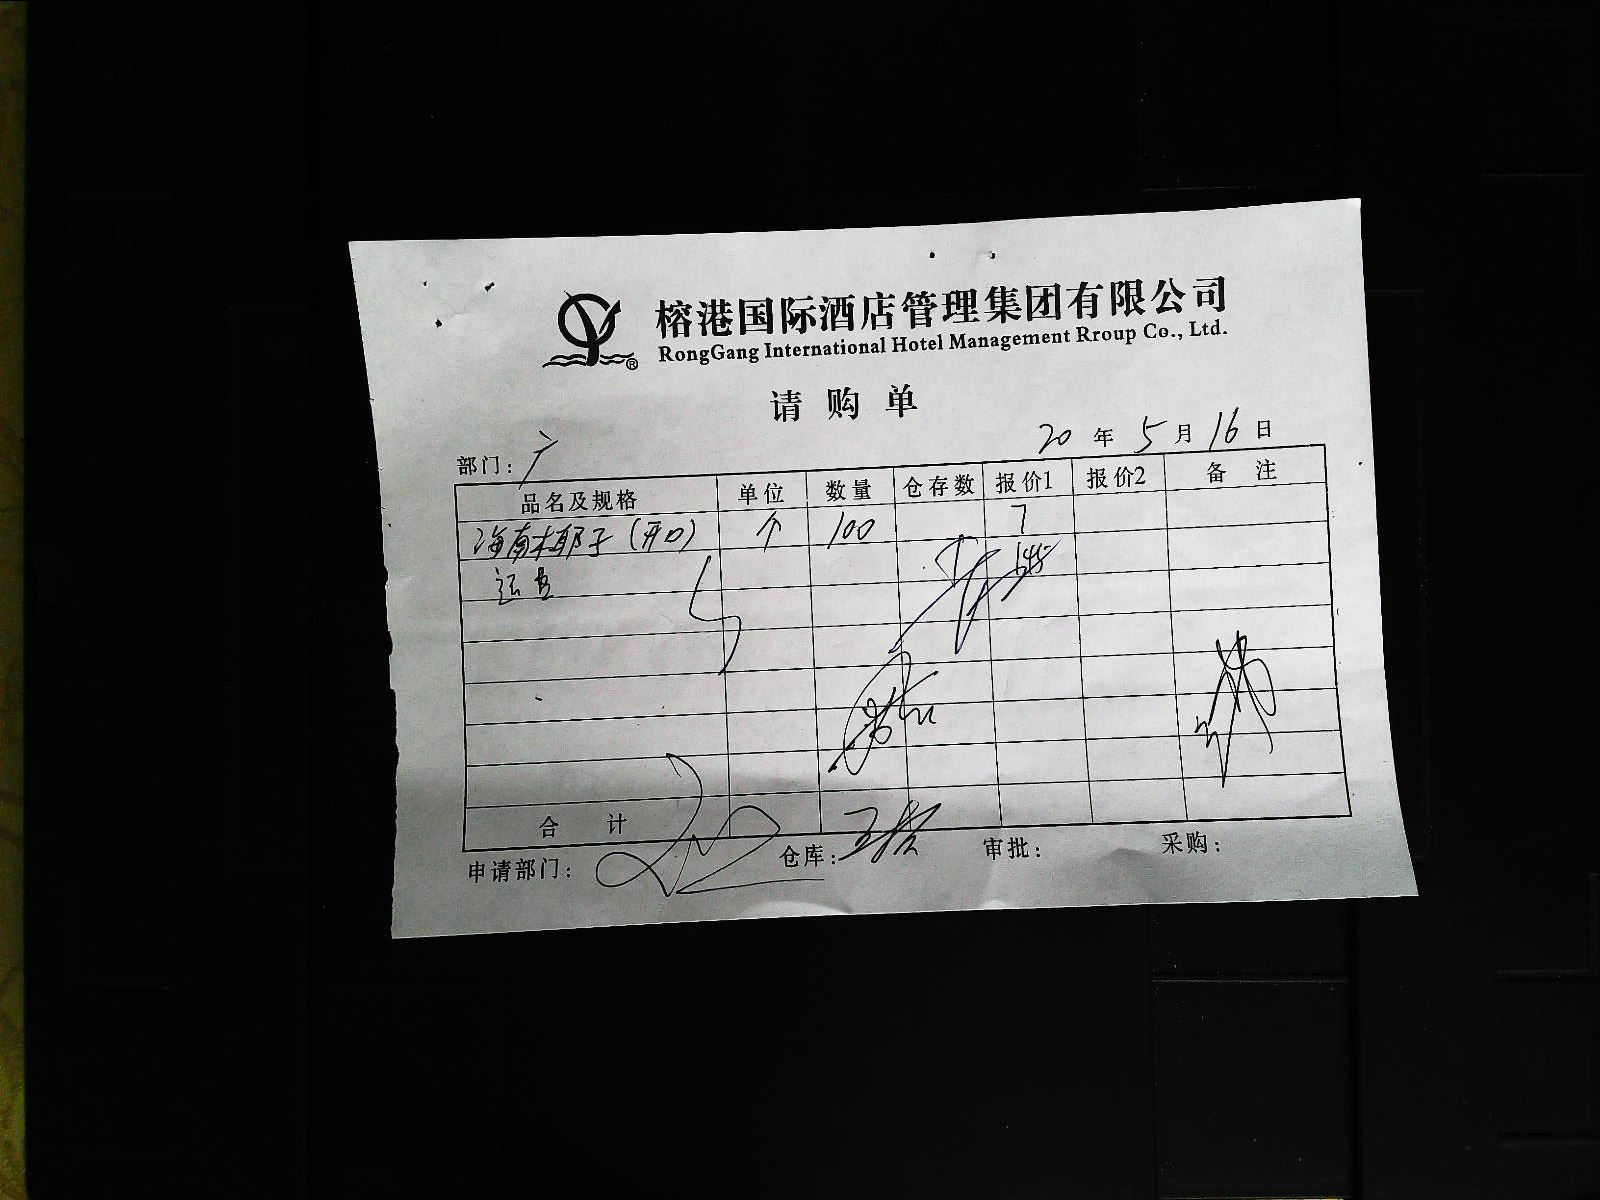 榕港国际酒店管理集团有限公司
RongGang International Hotel Management Rroup Co., Ltd.
请购单
20年5月16日
部门：广
品名及规格 单位 数量 仓存数 报价1 报价2 备注
海南椰子（开口） 个 100 7
运
合计
申请部门： 仓库： 审批： 采购：